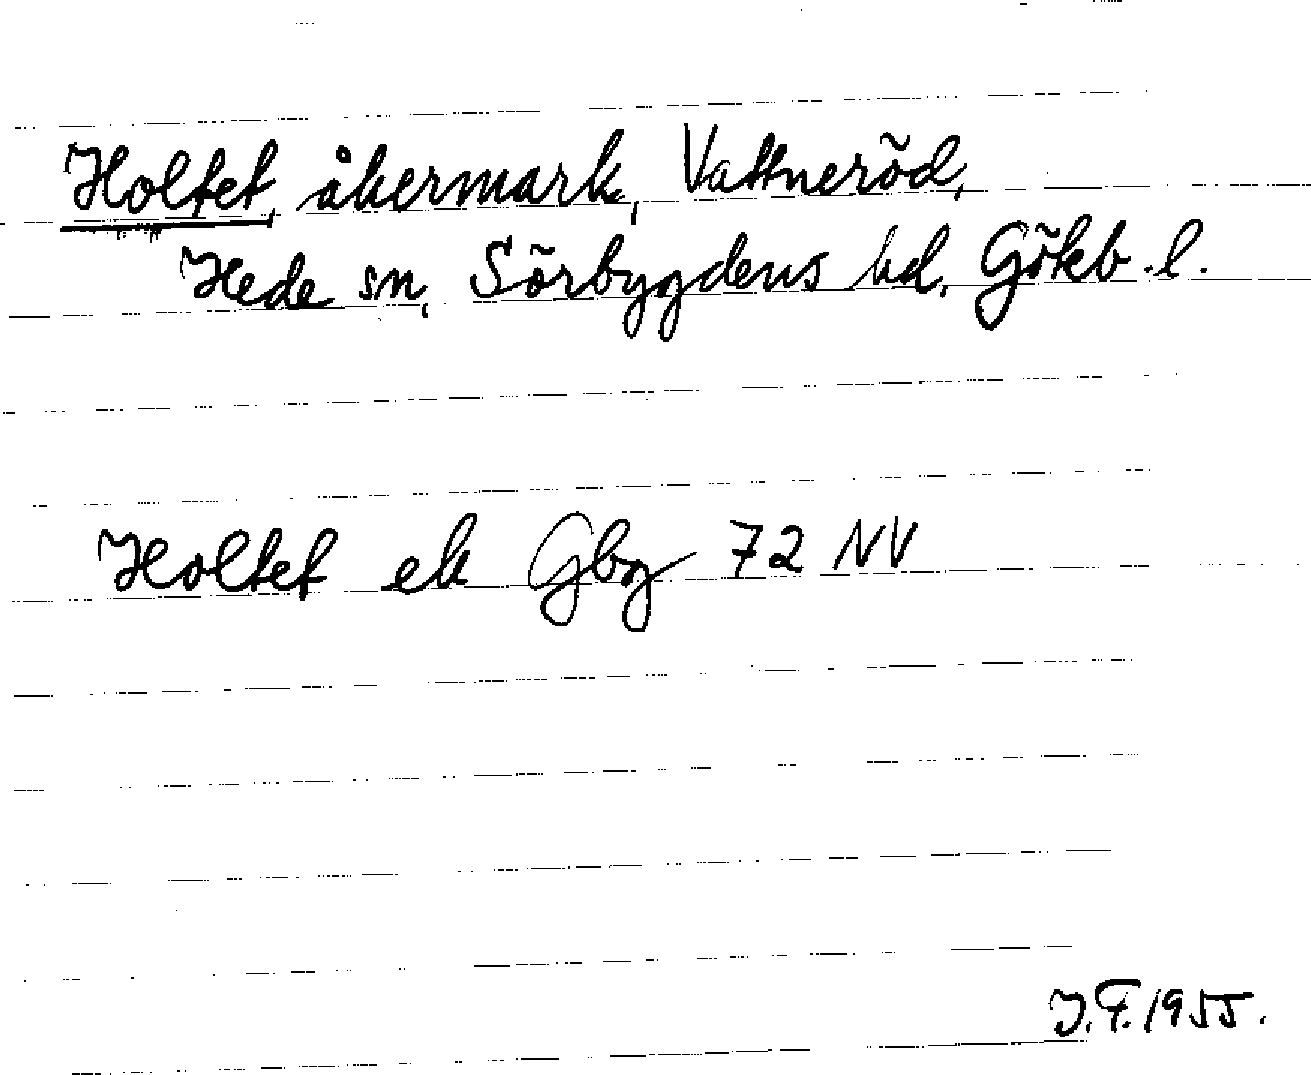 Holtet, åkermark, Vattneröd,
Hede sn, Sörbygdens hd, Gökb. l.
Holtet ek Gbg 72 NV
J.F. 1955.